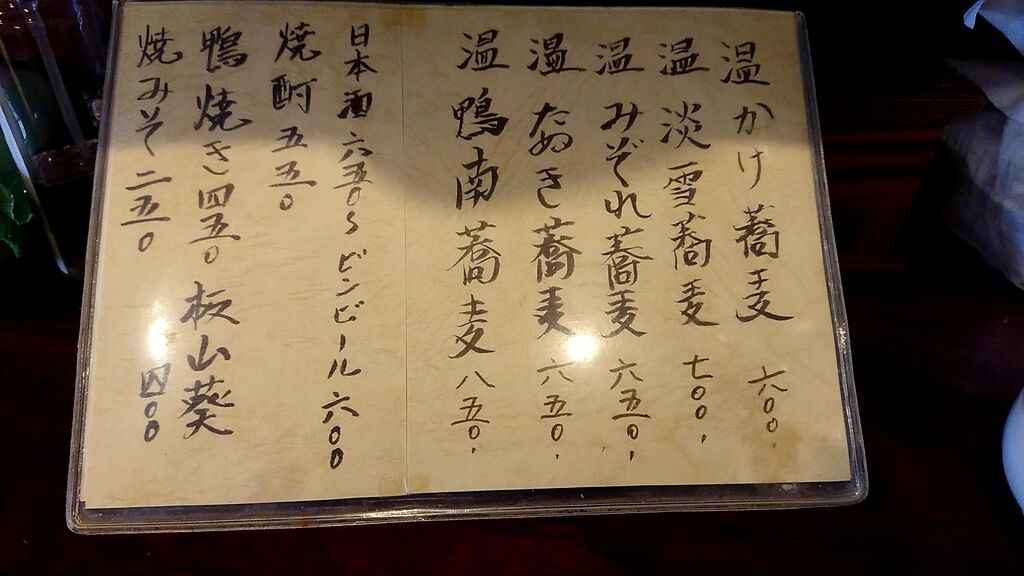 温かけ蕎麦 六〇〇.
温淡雪蕎麦 七〇〇.
温みぞれ蕎麦 六五〇.
温たぬき蕎麦 六五〇.
温鴨南蕎麦 八五〇.
日本酒 六五〇〜 ビンビール 六〇〇
焼酎 五五〇
鴨焼き 四五〇 板山葵
焼みそ 二五〇 四〇〇